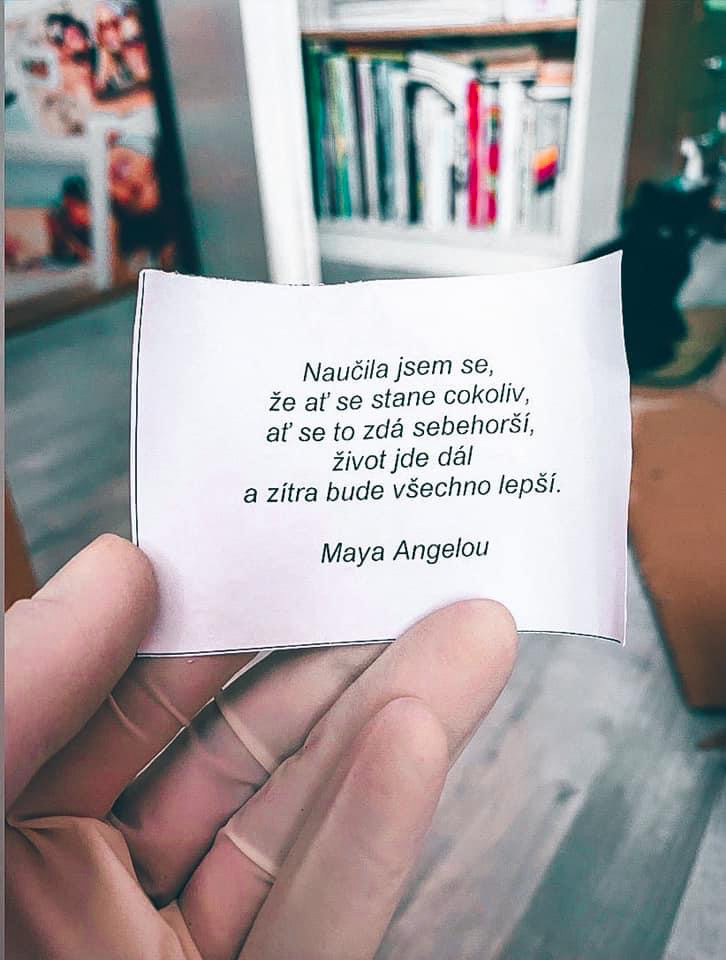 Naučila jsem se,
že ať se stane cokoliv,
ať se to zdá sebehorší,
život jde dál
a zítra bude všechno lepší.
Maya Angelou